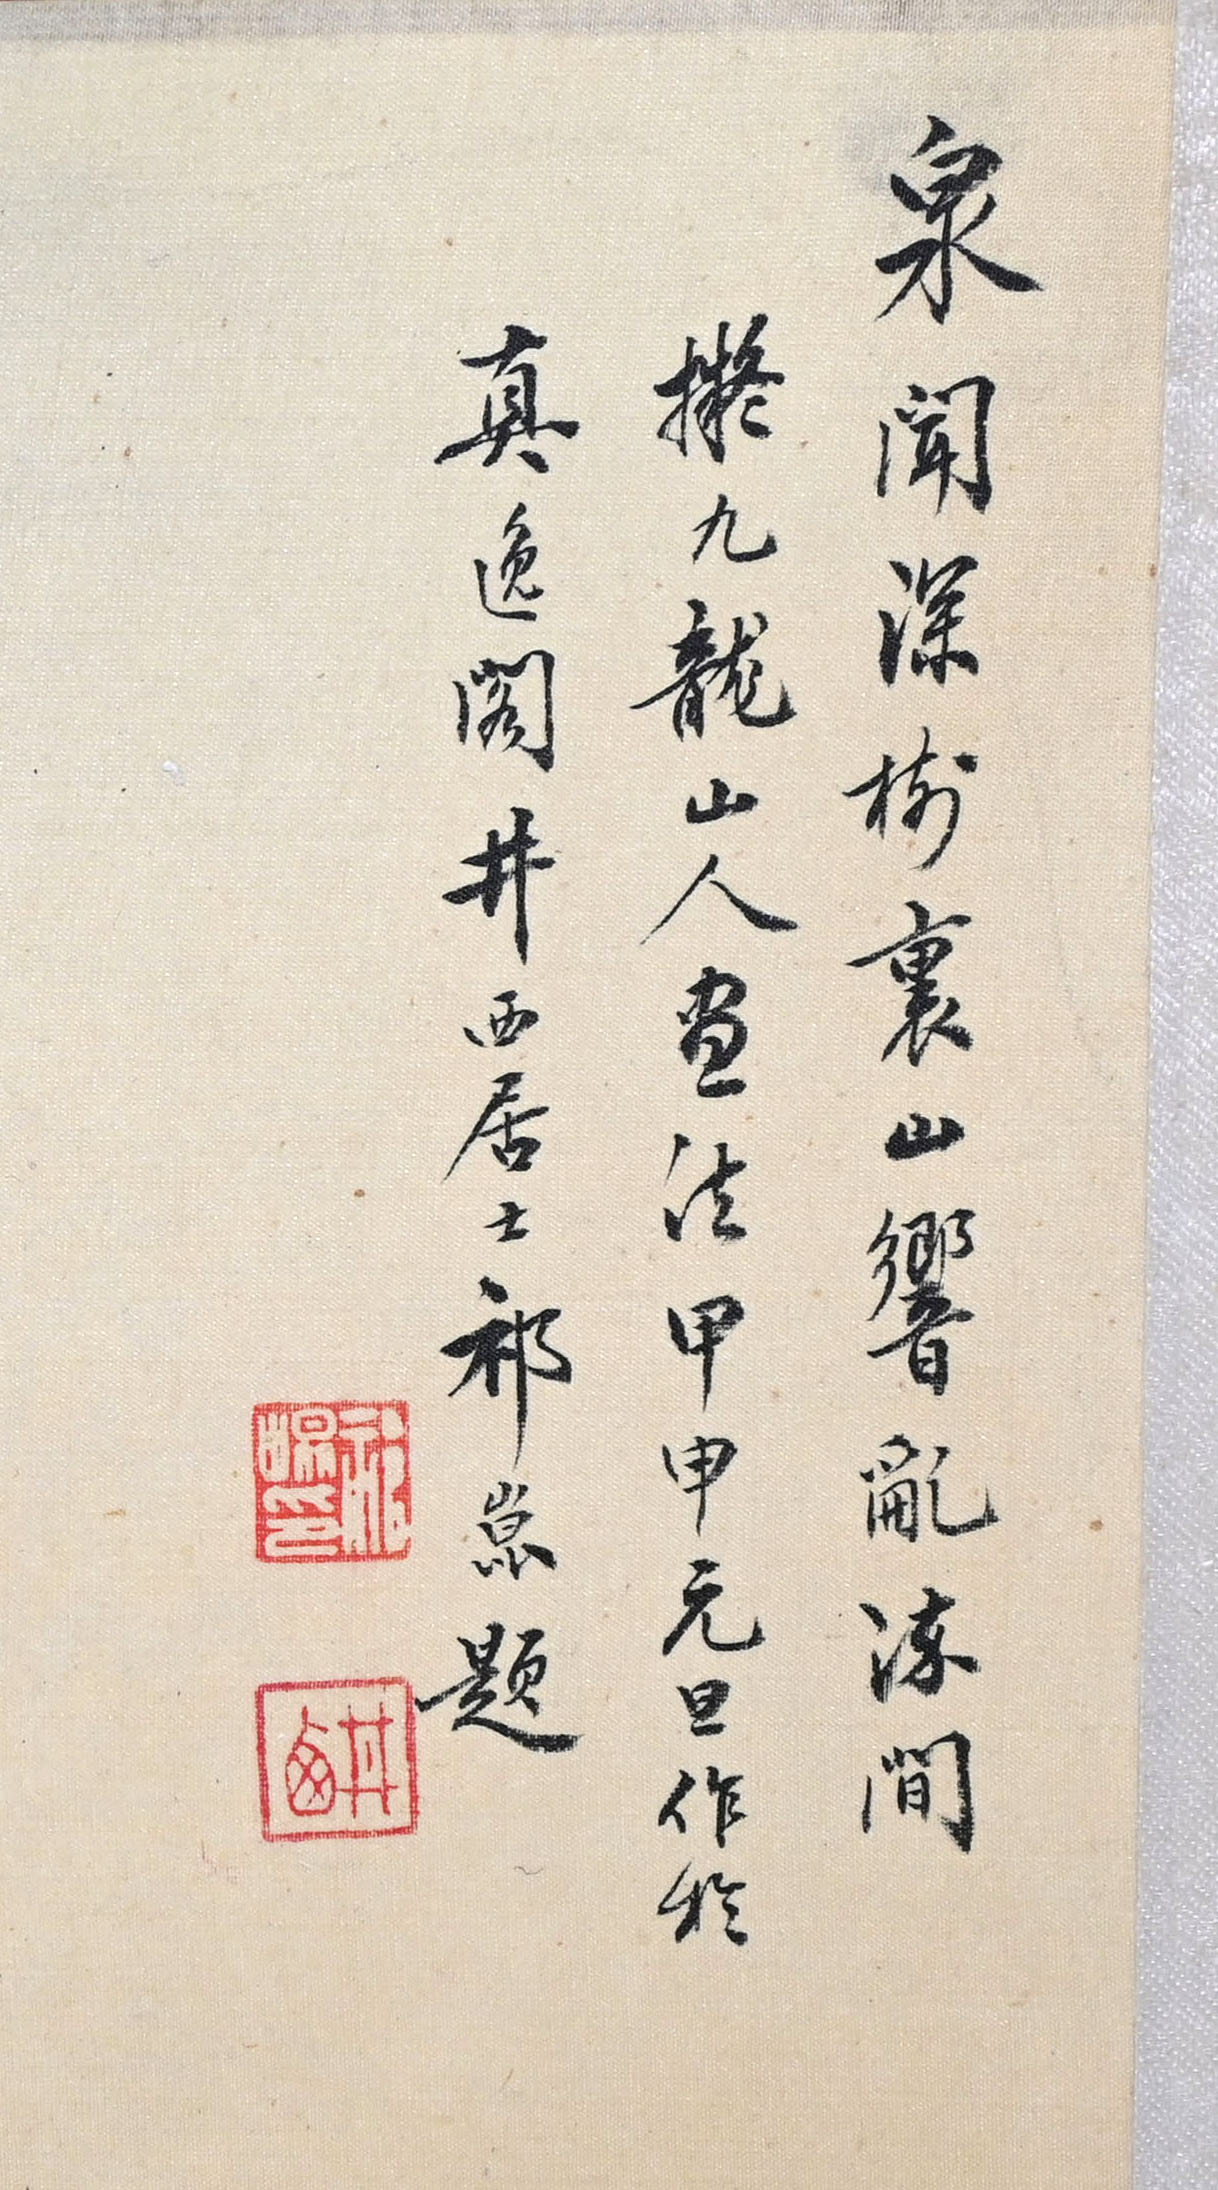 泉聞深樹裏山響亂流間
擬九龍山人畫法甲申元旦作於
真逸閣井西居士祁崑題
祁崑印
井西